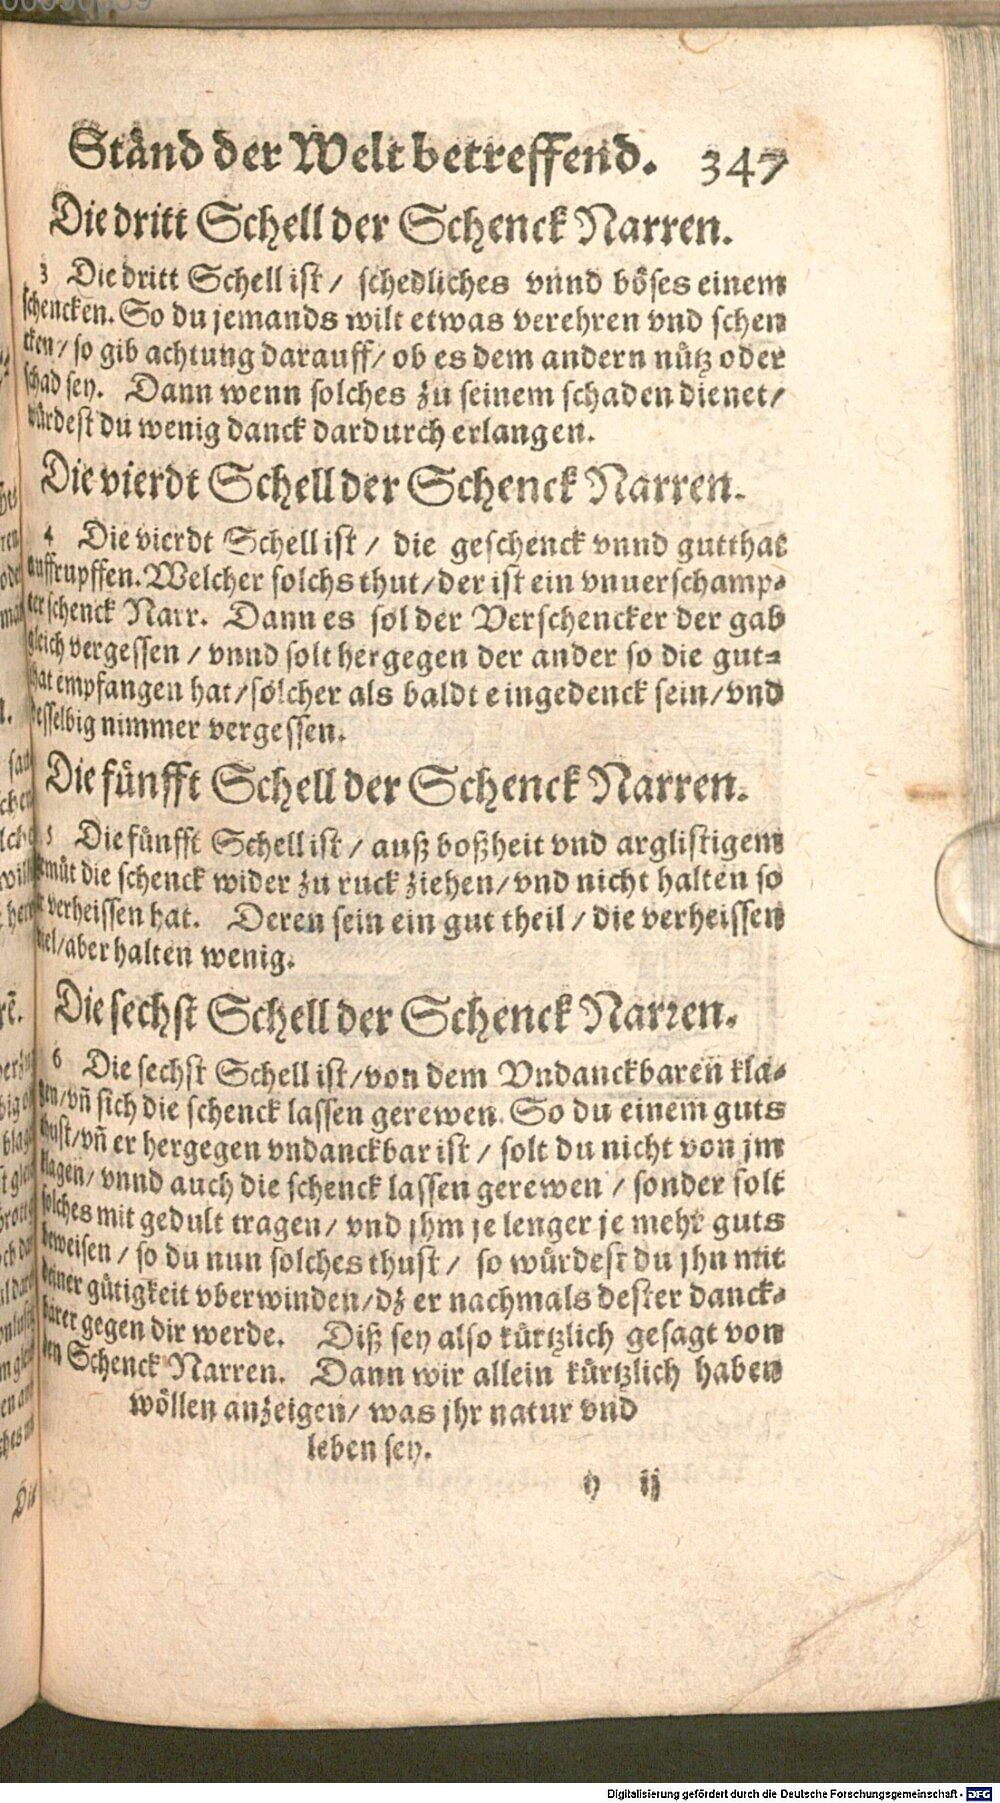 Ständ der Welt betreffend. 347
Die dritt Schell der Schenck Narren.
3 Die dritt Schell ist / schedliches vnnd böses einem
schencken. So du jemands wilt etwas verehren vnd schen
cken / so gib achtung darauff / ob es dem andern nütz oder
schad sey. Dann wenn solches zu seinem schaden dienet /
würdest du wenig danck dardurch erlangen.
Die vierdt Schell der Schenck Narren.
4 Die vierdt Schell ist / die geschenck vnnd gutthat
auffrupffen. Welcher solchs thut / der ist ein vnuerschamp-
ter schenck Narr. Dann es sol der Verschencker der gab
gleich vergessen / vnnd solt hergegen der ander so die gut-
that empfangen hat / solcher als baldt eingedenck sein / vnd
desselbig nimmer vergessen.
Die fünfft Schell der Schenck Narren.
5 Die fünfft Schell ist / auß boßheit vnd arglistigem
gemüt die schenck wider zu ruck ziehen / vnd nicht halten so
er verheissen hat. Deren sein ein gut theil / die verheissen
viel / aber halten wenig.
Die sechst Schell der Schenck Narren.
6 Die sechst Schell ist / von dem Vndanckbaren kla-
gen / vñ sich die schenck lassen gerewen. So du einem guts
thust / vñ er hergegen vndanckbar ist / solt du nicht von jm
klagen / vnnd auch die schenck lassen gerewen / sonder solt
solches mit gedult tragen / vnd jhm je lenger je mehr guts
beweisen / so du nun solches thust / so würdest du jhn mit
deiner gütigkeit vberwinden / dz er nachmals dester danck-
barer gegen dir werde. Diß sey also kürtzlich gesagt von
den Schenck Narren. Dann wir allein kürtzlich haben
wöllen anzeigen / was jhr natur vnd
leben sey.
y ij
Digitalisierung gefördert durch die Deutsche Forschungsgemeinschaft - DFG